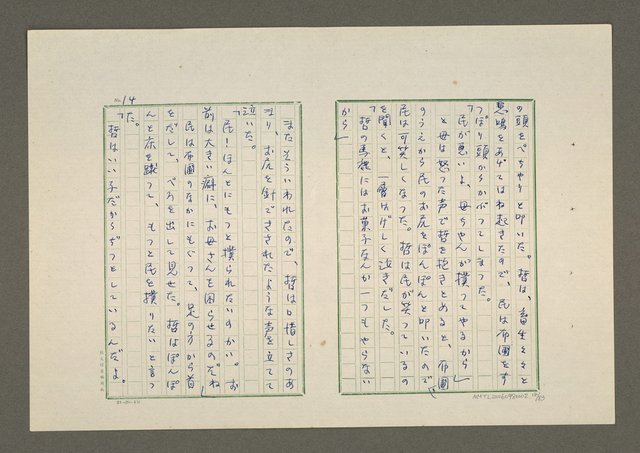 の頭をぺちやりと叩いた。哲は、畜生々々と
悲鳴をあげてはね起きたので、民は布團をす
つぽり頭からかぶつてしまつた。
「民が悪いよ、母ちやんが撲つてやるから」
と母は怒つた声で哲を抱きとめると、布團
のうえから民のお尻をぽんぽんと叩いたので
民は可笑しくなつた。哲は民が笑つているの
を聞くと、一層はげしく泣きだした。
「哲の馬鹿にはお菓子なんか一つもやらない
から」
No. 14
またそういわれたので、哲は口惜しさのあ
まり、お尻を針でさされたような声を立てて
泣いた。
「民！ほんとにもつと撲られたいのかい。お
前は大きい癖に、お母さんを困らせるのだね」
民は布團のなかにもぐつて、足の方から首
をだして、べろを出して見せた。哲はぽんぽ
んと床を蹴つて、もつと民を撲りたいと言つ
た。
「哲はいい子だからぢつとしているんだよ。